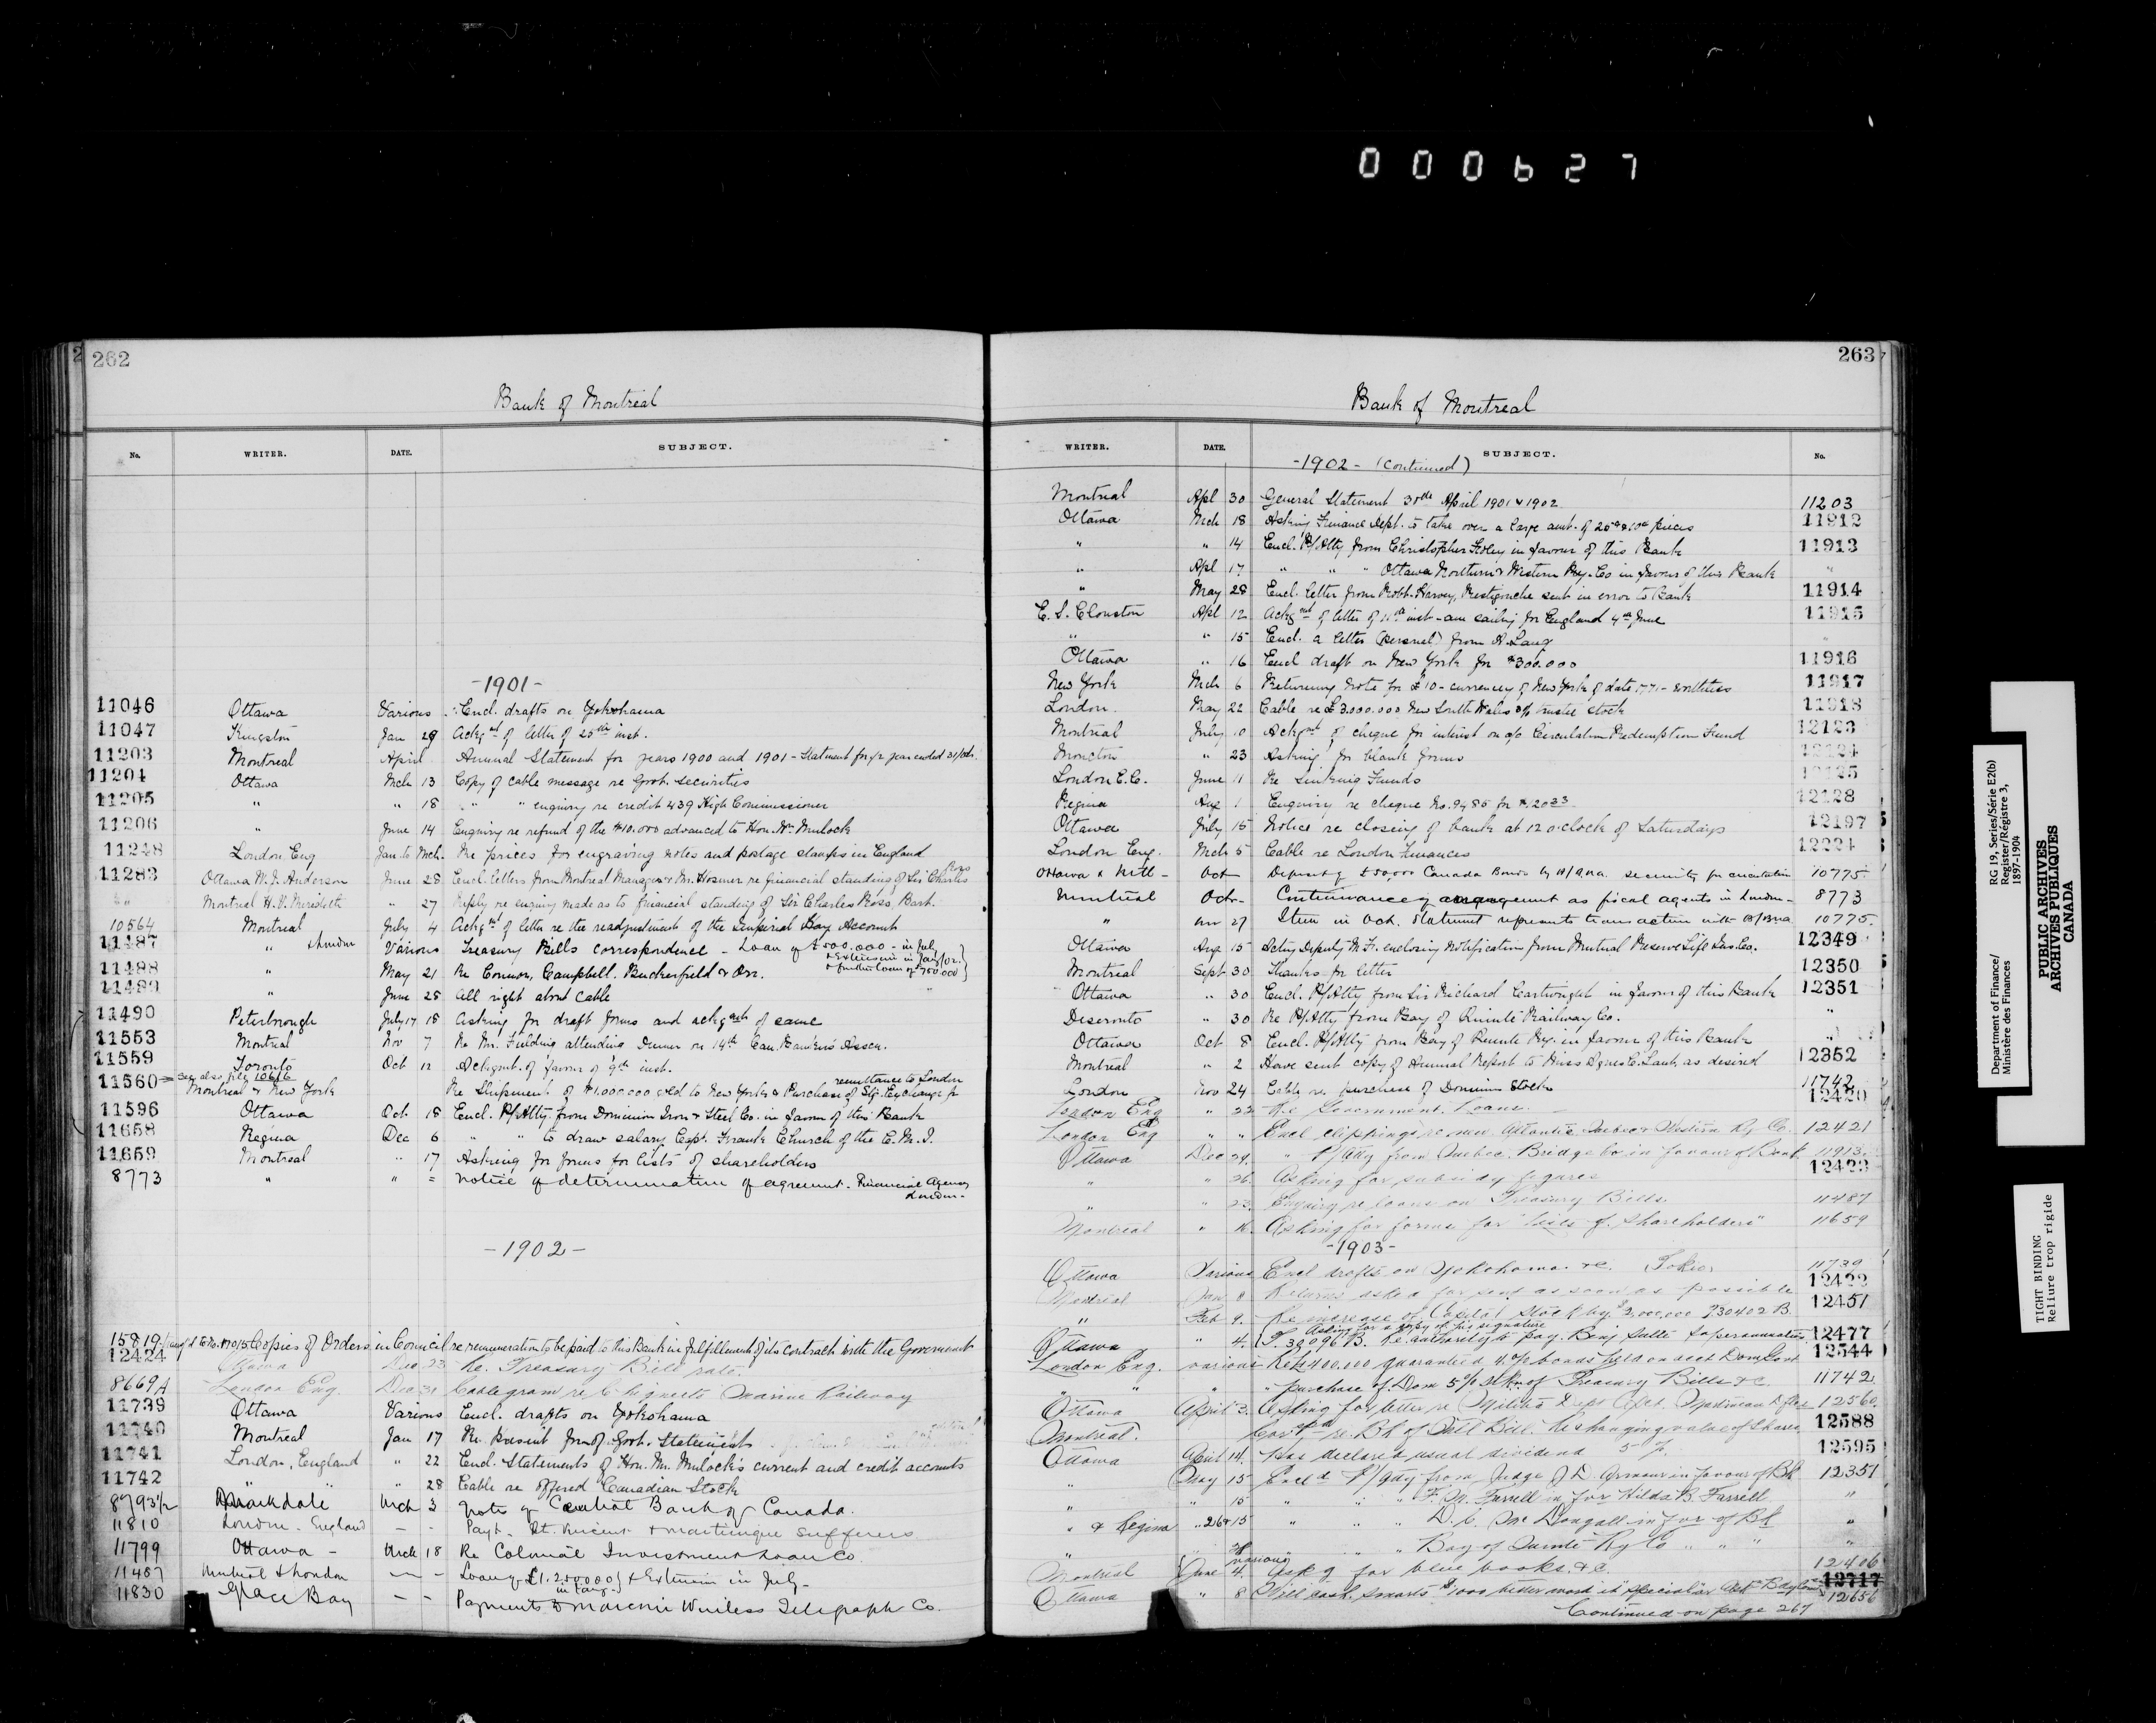 000627
262
Bank of Montreal
No. WRITER. DATE. SUBJECT.
-1901-
11046 Ottawa Various Encl. drafts on Yokohama
11047 Kingston Jan 29 Ackgmt of letter of 25th inst.
11203 Montreal April Annual Statement for years 1900 and 1901 - Statment for 1/2 year ended 31/Oct.
11204 Ottawa Mch 13 Copy of cable message re Govt. securities
11205 " " 18 " " enquiry re credit 439 High Commissioner
11206 " June 14 Enquiry re refund of the $10.000 advanced to Hon. Wm. Mulock
11248 London Eng Jan to Mch. Re prices for engraving notes and postage stamps in England
11283 Ottawa W. J. Anderson June 28 Encl. letters from Montreal Manager & Mr. Hosmer re financial standing of Sir Charles Ross
" Montreal H. V. Meredith " 27 Reply re enquiry made as to financial standing of Sir Charles Ross, Bart.
10564 Montreal July 4 Ackgmt of letter re the readjustment of the Imperial Pay Account
11487 " & London Various Treasury Bills correspondence - Loan of £500.000 - in July
& Extension in Jan/02.
& further loan of £750.000
11488 " May 21 Re Connor, Campbell, Rutherfield & Orr.
11489 " June 25 All right about cable
11490 Peterborough July 17 18 Asking for draft forms and ackgmt of same
11553 Montreal Nov 7 Re Mr. Fielding attending Dinner on 14th Can. Bankers' Assen.
11559 Toronto Oct 12 Ackngmt. of favour of 9th inst.
See also file 10616
11560 Montreal & New York Re Shipment of $1.000.000 gold to New York & Purchase of Stg. Exchange for remittance to London
11596 Ottawa Oct. 18 Encl. P/Atty from Dominion Iron & Steel Co. in favour of this Bank
11658 Regina Dec 6 " " to draw salary Capt. Frank Church of the C. M. I.
11659 Montreal " 17 Asking for forms for lists of shareholders
8773 " " = Notice of determination of agreement. Financial Agency London -
-1902-
15819 Copies of Orders in Council re remuneration to be paid to this Bank in fulfillment of its contract with the Government
12424 Ottawa Dec. 23 Re. Treasury Bill rate.
8669A London Eng. Dec 31 Cablegram re Chignecto Marine Railway
11739 Ottawa Various Encl. drafts on Yokohama
11740 Montreal Jan 17 Re. Present form of Govt. Statement
11741 London, England " 22 Encl. Statements of Hon. Mr. Mulock's current and credit accounts
11742 " " 28 Cable re offered Canadian Stock
8793 1/2 Markdale Mch 3 Note of Central Bank of Canada.
11810 London. England - - Payt. St. Vincent & Martinique sufferers
11799 Ottawa - Mch 18 Re Colonial Investment & Loan Co.
11487 Montreal & London - - Loan of £1,250,000 in Jany. & Extension in July -
11830 Glace Bay - - Payments to Marconi Wireless Telegraph Co.
263
Bank of Montreal
WRITER. DATE. SUBJECT. No.
-1902- (Continued)
Montreal Apl 30 General Statement 30th April 1901 & 1902 11203
Ottawa Mch 18 Asking Finance Dept. to take over a large amt. of 20c & 10c pieces 11912
" " 14 Encl. P/Atty from Christopher Foley in favour of this Bank 11913
" Apl 17 " " " Ottawa Northern & Western Ry. Co in favour of this Bank "
" May 28 Encl. letter from Robt. Harvey, Restigouche sent in error to Bank 11914
E. S. Clouston Apl 12 Ackgmt of letter of 11th inst - am sailing for England 4th June 11915
" " 15 Encl. a letter (personal) from A. Lang "
Ottawa " 16 Encl draft on New York for $300.000 11916
New York Mch 6 Returning note for £10 - currency of New York of date 1771 - worthless 11917
London. May 22 Cable re £3.000.000 New South Wales 3% trustee stock 11918
Montreal July 10 Ackgmt of cheque for interest on a/c Circulation Redemption Fund 12123
Moncton " 23 Asking for blank forms 12124
London E.C. June 11 Re Sinking Funds 12125
Regina Aug 1 Enquiry re cheque No. 9485 for $ 12128
Ottawa July 15 Notice re closing of bank at 12 o'clock of Saturdays 12197
London Eng. Mch 5 Cable re London Finances
Ottawa & Mtl - Oct Deposit of £50,000 Canada Bonds by B/ security for circulation 10775.
Montreal Oct. - Continuance of arrangement as fiscal agents in London - 8773
" Nov 27 Item in Oct. Statement represents transaction with 10775.
Ottawa Aug 15 Acting Deputy M. F. enclosing notification from Mutual Reserve Life Ins. Co. 12349
Montreal Sept 30 Thanks for letter 12350
Ottawa " 30 Encl. P/Atty from Sir Richard Cartwright in favour of this Bank 12351
Deseronto " 30 Re P/Atty from Bay of Quinte Railway Co. "
Ottawa Oct 8 Encl. P/Atty from Bay of Quinte Ry. in favour of this Bank "
Montreal " 2 Have sent copy of Annual Report to Miss Agnes C. Laut, as desired 12352
London Nov 24 Cable re. purchase of Dominion Stock 11742
London Eng " 22 Re Government Loans. 12420
London Eng " " Encl clippings re new Atlantic Quebec & Western Ry Co. 12421
Ottawa Dec 29. " P/Atty from Quebec Bridge Co in favour of Bank 11913.
" " 26. Asking for subsidy figures 12423
" " 23. Enquiry re loans on Treasury Bills. 11487
Montreal " 16. Asking for forms for "Lists of Shareholders" 11659
-1903-
Ottawa Various Encl drafts on Yokohama &c. Tokio. 11739
Montreal Jan 8 Returns asked for sent as soon as possible 12422
" Feb 9. Re increase of Capital Stock by $2,000,000 730402 B. 12451
Asking for a copy of his signature
Ottawa " 4. F. 39096 B. Re. authority to pay Benj. Sulte superannuation 12477
London Eng. various Re £400.000 guaranteed 4% bonds held on acct Dom Govt 12544
" " " " purchase of Dom 5% stk. or of Treasury Bills &c. 11742
Ottawa April 3. Asking for letter re Militia Dept 12560.
Montreal. re. Bk of Mtl Bill. Re changing value of Shares 12588
Ottawa April 14. Has declared usual dividend 5% 12595
" May 15 Encl'd P/Atty from Judge J. D. Armour in favour of Bk 12351
" " 15 " " " F. M. Farrell in for Hilda B. Farrell "
" & Regina " 26 & 15 " " " D. C. McDougall in for of Bk "
" " " " Bay of Quinte Ry Co " " " "
Montreal June 4. Ask'g for blue books, &c. 12406
Ottawa " 8 12717 12656
Continued on page 267
Department of Finance/
Ministère des Finances
RG 19, Series/Série E2(b)
Register/Régistre 3,
1897-1904
PUBLIC ARCHIVES
ARCHIVES PUBLIQUES
CANADA
TIGHT BINDING
Reliure trop rigide